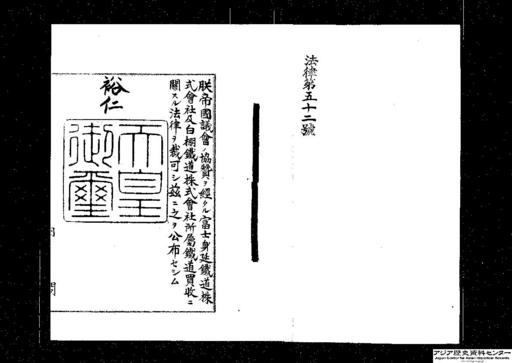 法律第五十二號
朕帝國議會ノ協贊ヲ經タル富士身延鐵道株
式會社及白棚鐵道株式會社所屬鐵道買收ニ
關スル法律ヲ裁可シ茲ニ之ヲ公布セシム
裕仁
天皇
御璽
アジア歴史資料センター
Japan Center for Asian Historical Records